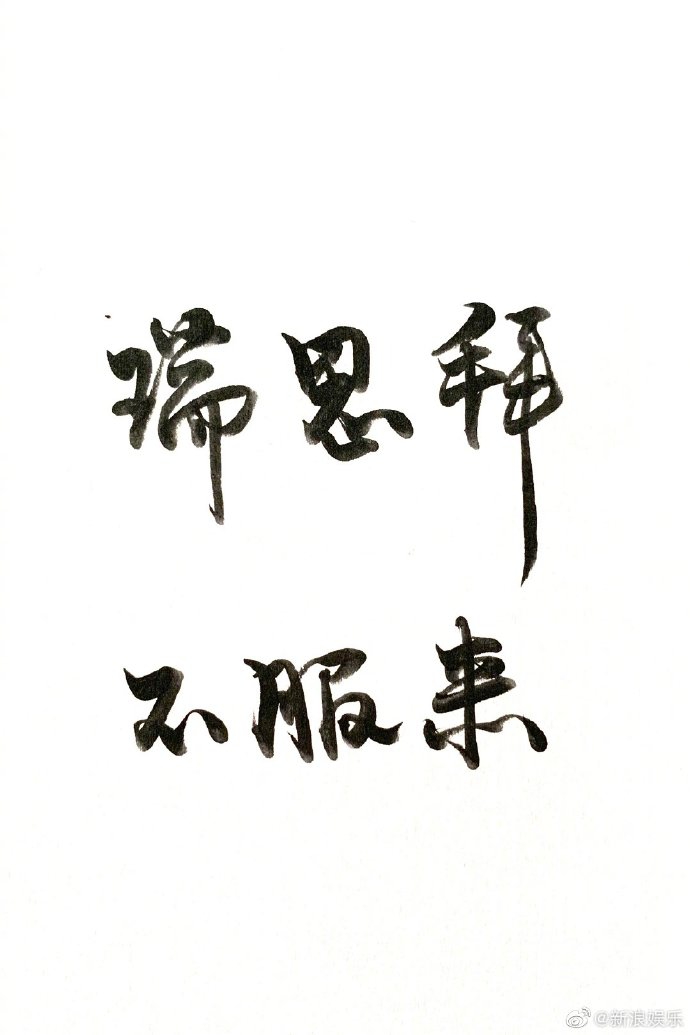 瑞思拜
不服来
@新浪娱乐